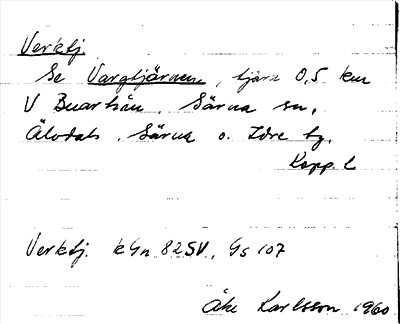 Verktj.
Se Vargtjärnen, tjärn 0,5 km
V Buarhån, Särna sn,
Älvdals, Särna o. Idre tg,
Kopp. l
Verktj. kGn 82SV, Gs 107
Åke Karlsson 1960